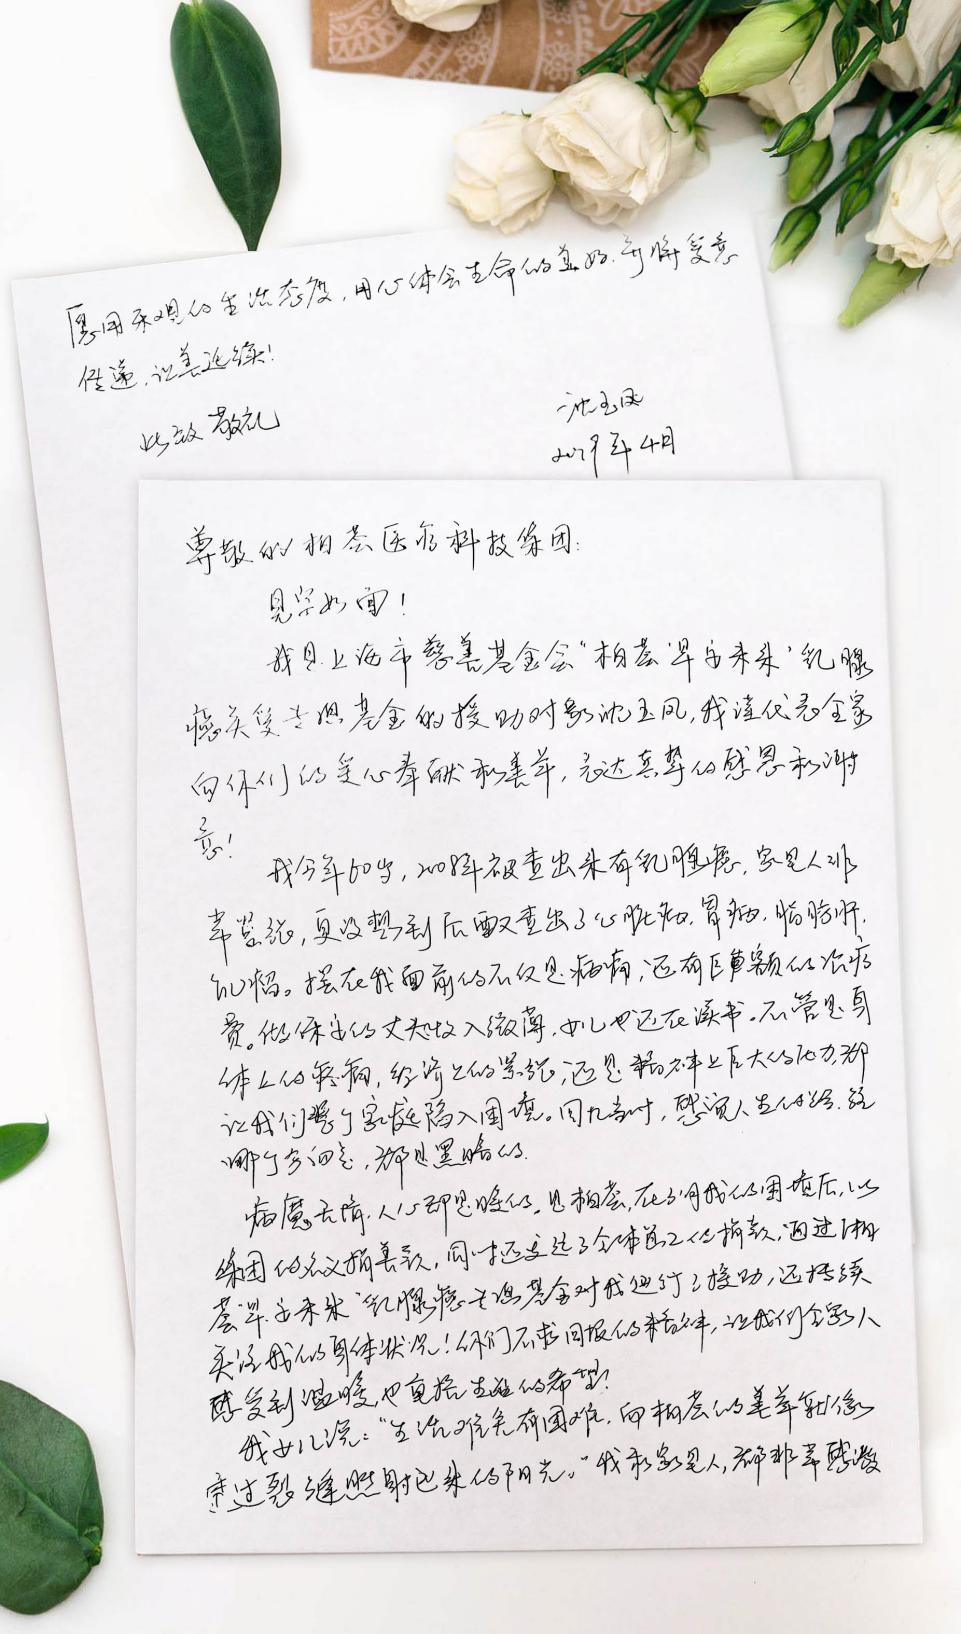 愿用乐观的生活态度，用心体会生命的美好，并将爱意
传递，让善延续！
此致 敬礼
沈玉凤
2019年4月
尊敬的相荟医疗科技集团：
见字如面！
我是上海市慈善基金会“相荟‘早安未来’乳腺
癌关爱专项基金的援助对象沈玉凤，我谨代表全家
向你们的爱心奉献和善举，表达真挚的感恩和谢
意！
我今年60岁，2008年被查出来有乳腺癌，家里人非
常紧张，更没想到后面又查出了心脏病、胃病、脂肪肝、
肌瘤。摆在我面前的不仅是病痛，还有巨额的治疗
费。做保安的丈夫收入微薄，女儿也还在读书。不管是身
体上的疼痛，经济上的紧张，还是精神上巨大的压力，都
让我们整个家庭陷入困境。同九当时，感觉人生
哪个方向走，都是黑暗的。
病魔无情，人心却是暖的。是相荟，在了解我的困境后，以
集团的名义捐善款，同时还发起了全体员工的捐款，通过“相
荟‘早安未来’乳腺癌专项基金对我进行了援助，还持续
关注我的身体状况！你们不求回报的精神，让我们全家人
感受到温暖，也重拾生活的希望！
我女儿说：“生活难免有困难，而相荟的善举就像
穿过裂缝照射进来的阳光。”我和家里人，都非常感激